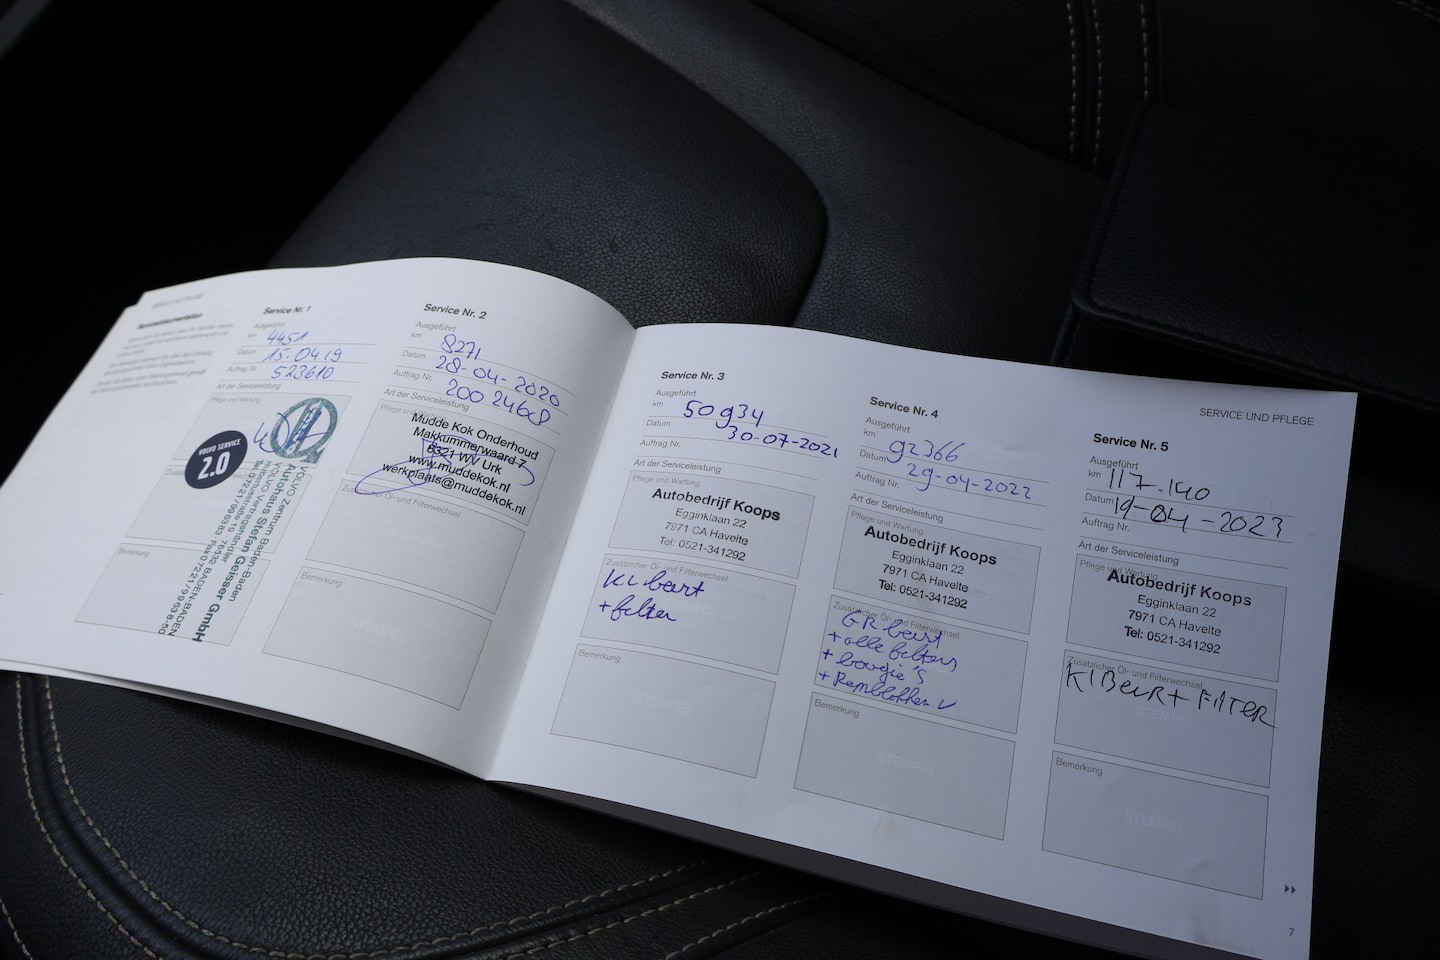 SERVICE UND PFLEGE
Servicedokumentation
Service Nr. 1
Ausgeführt
km 4451
Datum 15.04.19
Auftrag Nr. 523610
Art der Serviceleistung
Pflege und Wartung
VOLVO SERVICE
2.0
VOLVO Zentrum Baden-Baden
Autohaus Stefan Geisser GmbH
VOLVO Vertragshändler
76532 BADEN-BADEN
Tel. 07221/996383 · Fax 07221/99638-50
Bemerkung
Service Nr. 2
Ausgeführt
km 8271
Datum 28-04-2020
Auftrag Nr.
Art der Serviceleistung
Pflege und Wartung
Mudde Kok Onderhoud
Makkummerwaard 7
8321 WV Urk
www.muddekok.nl
werkplaats@muddekok.nl
Zusätzlicher Öl- und Filterwechsel
STEMPEL
Bemerkung
STEMPEL
Service Nr. 3
Ausgeführt
km 50934
Datum 30-07-2021
Auftrag Nr.
Art der Serviceleistung
Pflege und Wartung
Autobedrijf Koops
Egginklaan 22
7971 CA Havelte
Tel: 0521-341292
Zusätzlicher Öl- und Filterwechsel
Kl beurt
+ filter
Bemerkung
STEMPEL
Service Nr. 4
Ausgeführt
km 92366
Datum 29-04-2022
Auftrag Nr.
Art der Serviceleistung
Pflege und Wartung
Autobedrijf Koops
Egginklaan 22
7971 CA Havelte
Tel: 0521-341292
Zusätzlicher Öl- und Filterwechsel
GR beurt
+ alle filters
+ bougie's
+ Remblokken V
Bemerkung
STEMPEL
SERVICE UND PFLEGE
Service Nr. 5
Ausgeführt
km 117.140
Datum 19-04-2023
Auftrag Nr.
Art der Serviceleistung
Pflege und Wartung
Autobedrijf Koops
Egginklaan 22
7971 CA Havelte
Tel: 0521-341292
Zusätzlicher Öl- und Filterwechsel
Kl Beurt + FilTER
STEMPEL
Bemerkung
STEMPEL
7